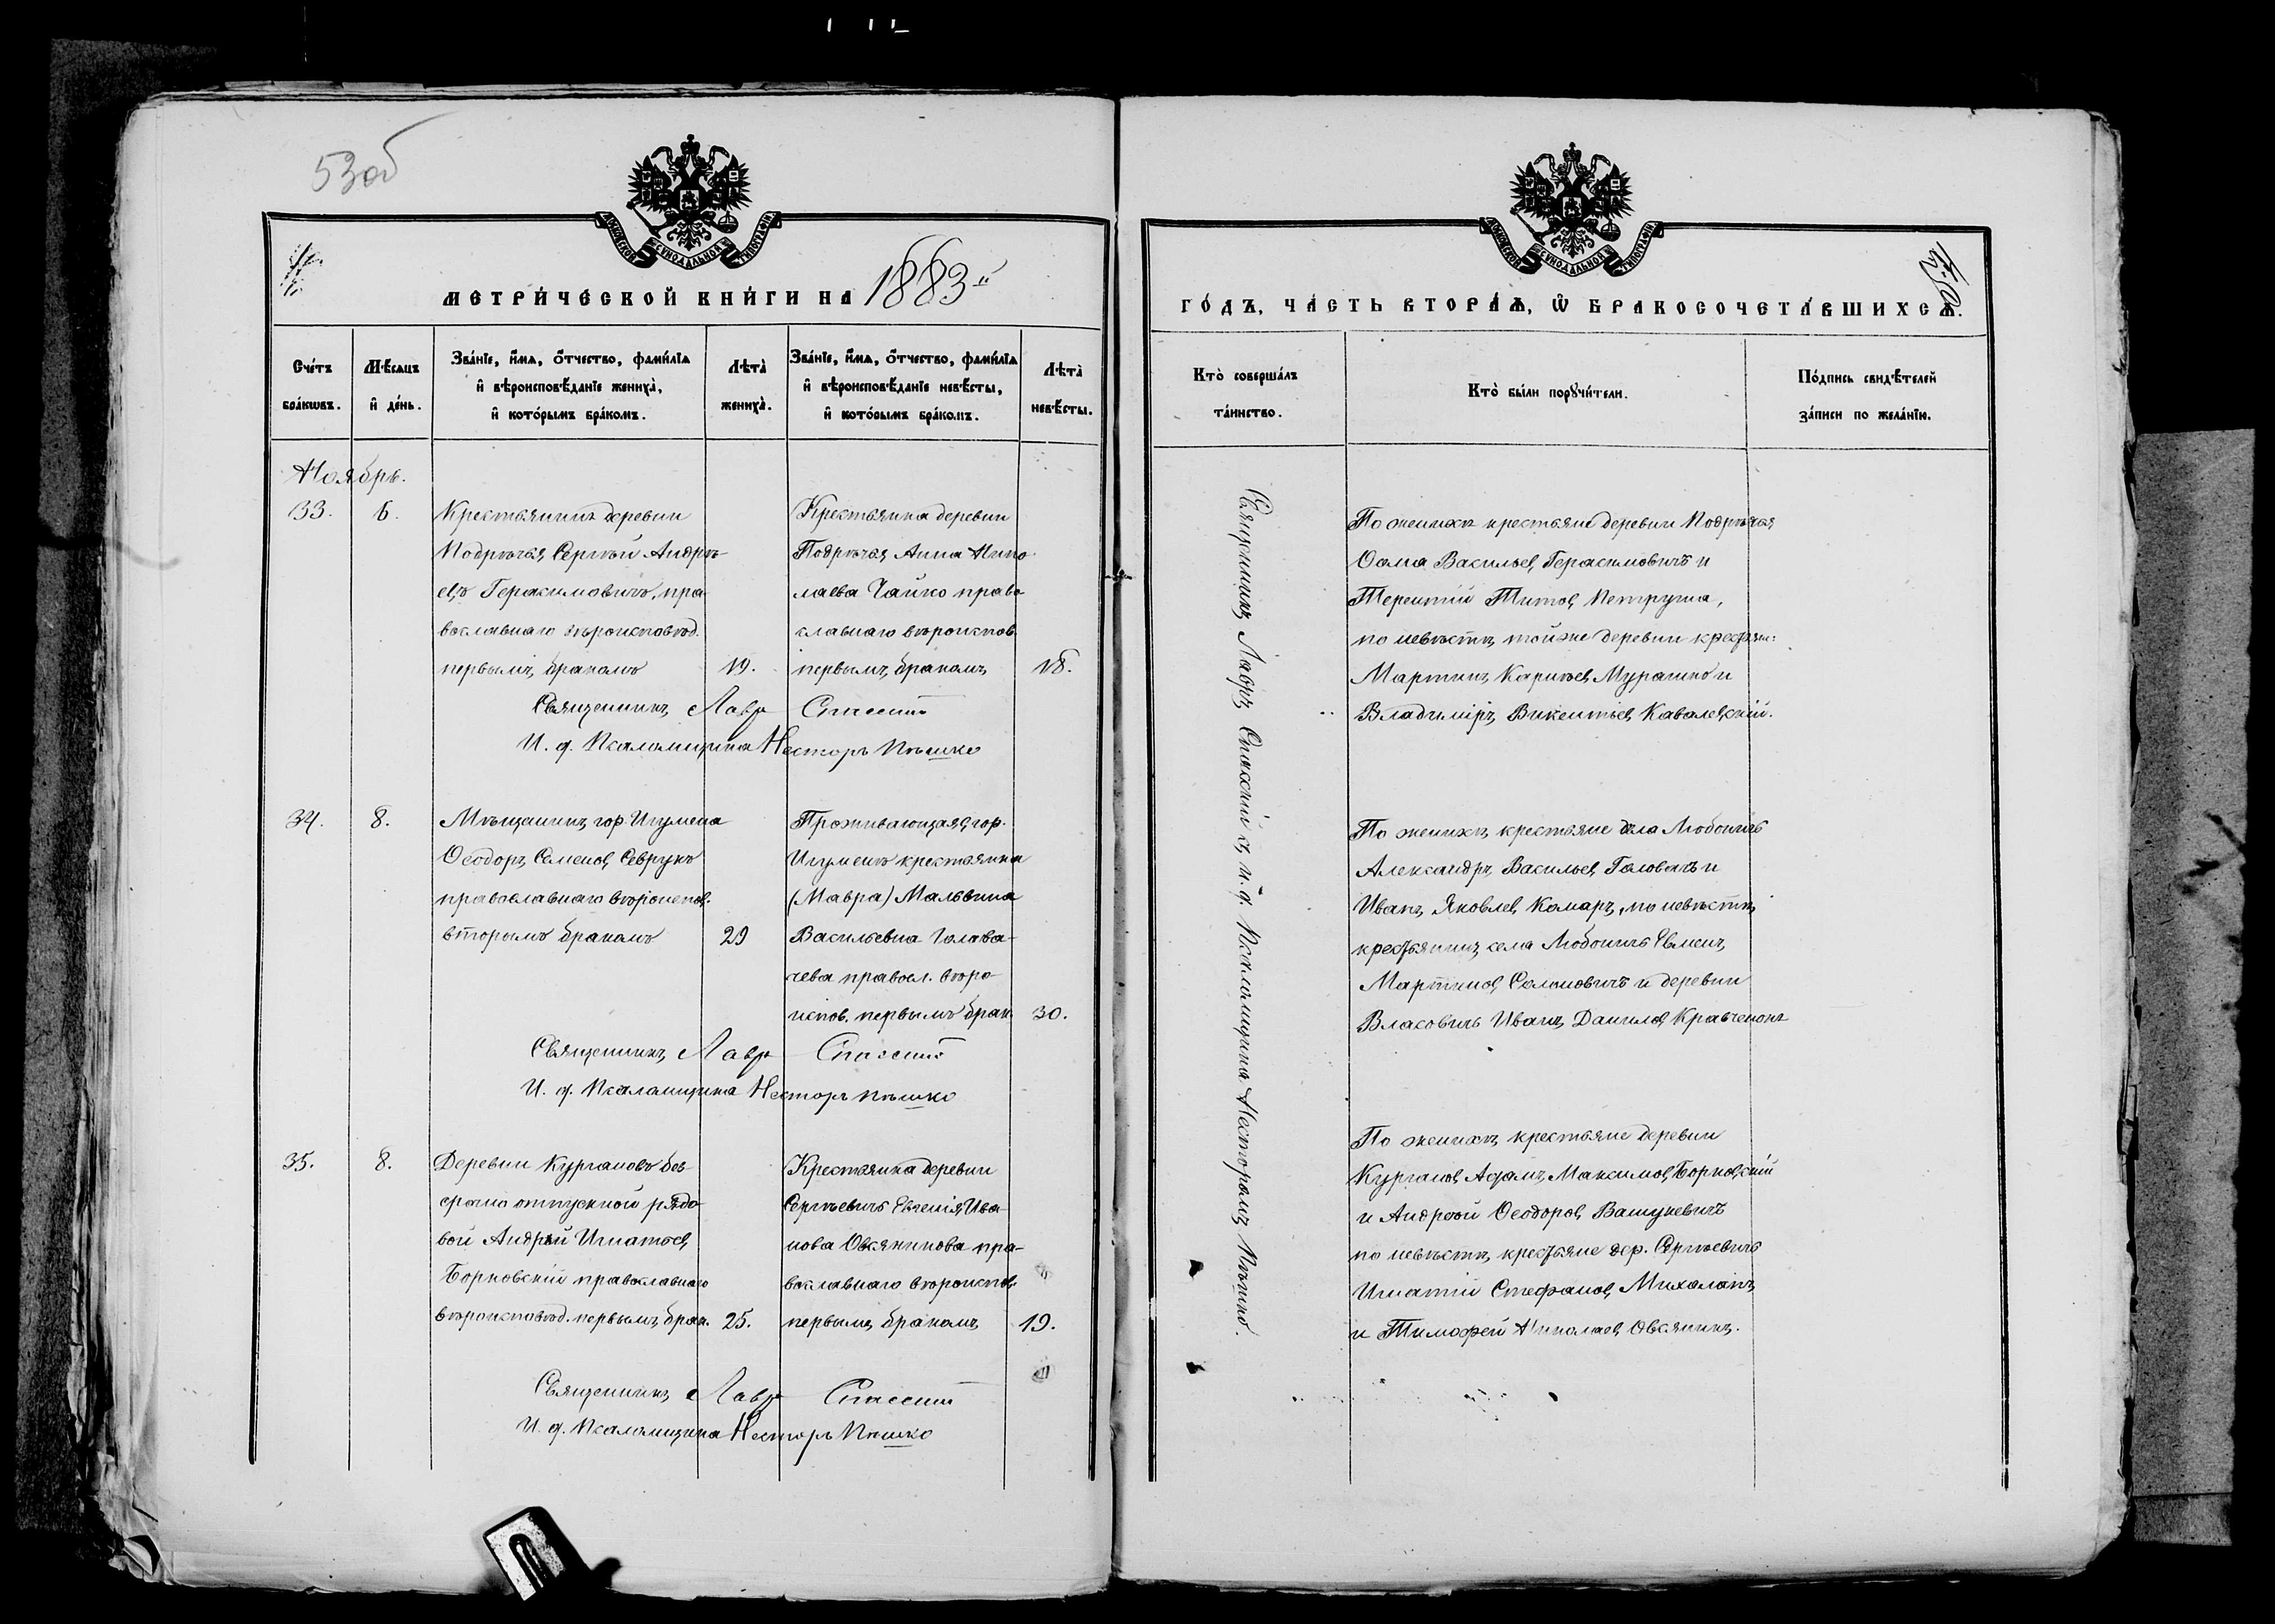 53об
МОСКОВСКОЙ СѴНОДАЛЬНОЙ ТИПОГРАФІИ
МЕТРИ́ЧЕСКОЙ КНИ́ГИ НА 1883й
Сче́тъ бра́кѡвъ.
Мѣ́сѧцъ и҆ де́нь.
Зва́нїе, и҆́мѧ, ѻ҆́тчество, фами́лїѧ и҆ вѣроисповѣ́данїе жениха̀, и҆ кото́рымъ бра́комъ.
Лѣта̀ жениха̀.
Зва́нїе, и҆́мѧ, ѻ҆́тчество, фами́лїѧ и҆ вѣроисповѣ́данїе невѣ́сты, и҆ кото́рымъ бра́комъ.
Лѣта̀ невѣ́сты.
Ноябрь.
33.
6.
Крестьянинъ деревни
Подрѣчья Сергѣй Андрѣ-
евъ Герасимовичъ, пра-
вославнаго вѣроисповѣд.
первымъ бракомъ
19.
Крестьянка деревни
Подрѣчья Анна Нико
лаева Чайко право
славнаго вѣроиспов.
первымъ бракомъ
18.
Священникъ Лавръ Спасскій
И. д. Псаломщика Несторъ Пѣшко
34.
8.
Мѣщанинъ гор. Игумена
Ѳеодоръ Семеновъ Севрукъ
православнаго вѣроиспов.
вторымъ бракомъ
29
Проживающая гор.
Игуменѣ крестьянка
(Мавра) Мальвина
Васильевна Голова-
чева правосл. вѣро-
испов. первымъ брак.
30.
Священникъ Лавръ Спасскій
И. д. Псаломщика Несторъ Пѣшко
35.
8.
Деревни Кургановъ без-
срочно отпускной рядо-
вой Андрей Игнатьевъ
Борковскій православнаго
вѣроисповѣд. первымъ брак.
25.
Крестьянка деревни
Сергѣевичъ Евгенія Ива-
нова Овсяникова пра-
вославнаго вѣроиспов.
первымъ бракомъ
19.
Священникъ Лавръ Спасскій
И. д. Псаломщика Несторъ Пѣшко
МОСКОВСКОЙ СѴНОДАЛЬНОЙ ТИПОГРАФІИ
ГО́ДЪ, ЧА́СТЬ ВТОРА́Ѧ, Ѡ҆ БРАКОСОЧЕТА́ВШИХСѦ.
Кто̀ соверша́лъ та́инство.
Кто̀ бы́ли порꙋчи́тели.
По́дпись свидѣ́телей за́писи по жела́нїю.
Священникъ Лавръ Спасскій съ и. д. Псаломщика Несторомъ Пѣшко.
По женихѣ крестьяне деревни Подрѣчья
Ѳома Васильевъ Герасимовичъ и
Терентій Титовъ Петруша,
по невѣстѣ той же деревни крестьян:
Мартинъ Карнѣевъ Мурашко и
Владиміръ Викентьевъ Кавалевскій.
По женихѣ крестьяне села Любоничъ
Александръ Васильевъ Головачъ и
Иванъ Яковлевъ Комаръ, по невѣстѣ
крестьянинъ села Любоничъ Евменъ
Мартиновъ Саламовичъ и деревни
Власовичъ Иванъ Даниловъ Кравченокъ
По женихѣ крестьяне деревни
Кургановъ Адамъ Максимовъ Борковскій
и Андрей Ѳеодоровъ Вашукевичъ
по невѣстѣ крестьяне дер. Сергѣевичъ
Игнатій Стефановъ Михалапъ
и Тимофей Николаевъ Овсяникъ.